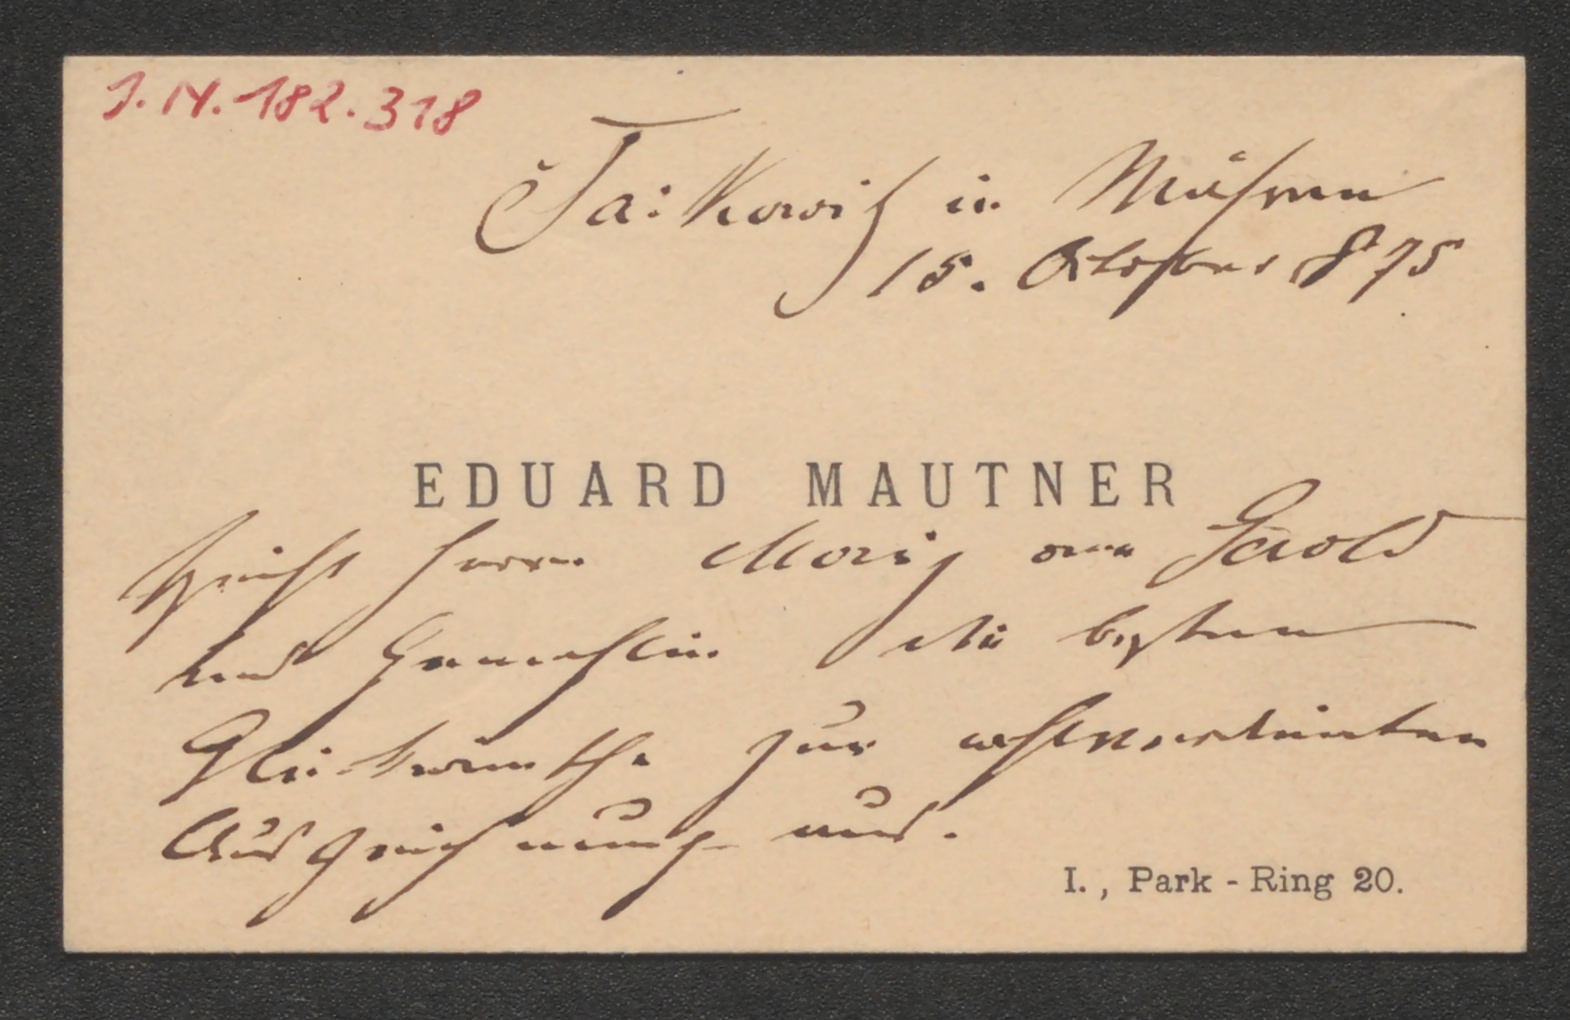 I.N. 182.318
Taikowitz in Mähren
15. October 875
EDUARD MAUTNER
spricht Herrn Moriz von Gerold
und Gemahlin die besten
Glückwünsche zur wohlverdienten
Auszeichnung aus.
I., Park-Ring 20.